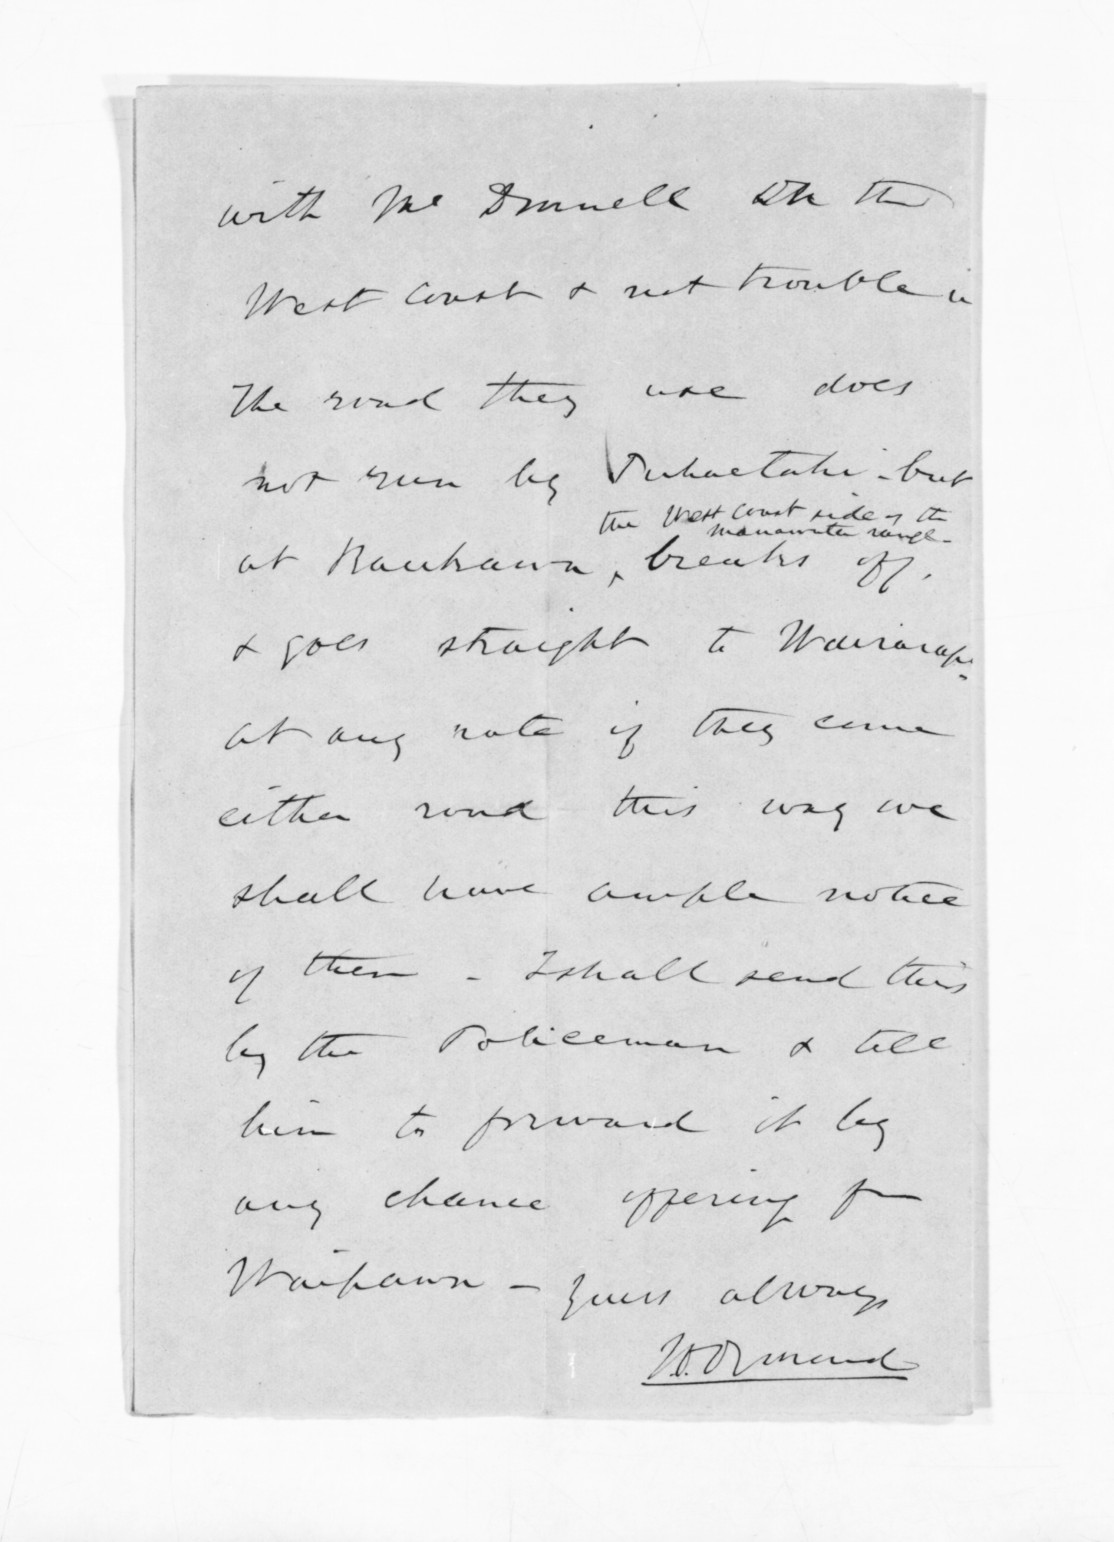 with McDonnell on the
West Coast & not trouble u
The road they use does
not run by Puhaetahi - but
the West Coast side of the
Manawatu range -
at Raukawa, breaks off,
& goes straight to Wairarapa
at any rate if they come
either road this way we
shall have ample notice
of them - I shall send this
by the Policeman & tell
him to forward it by
any chance offering for
Waipawa - Yours always
JD. Ormond